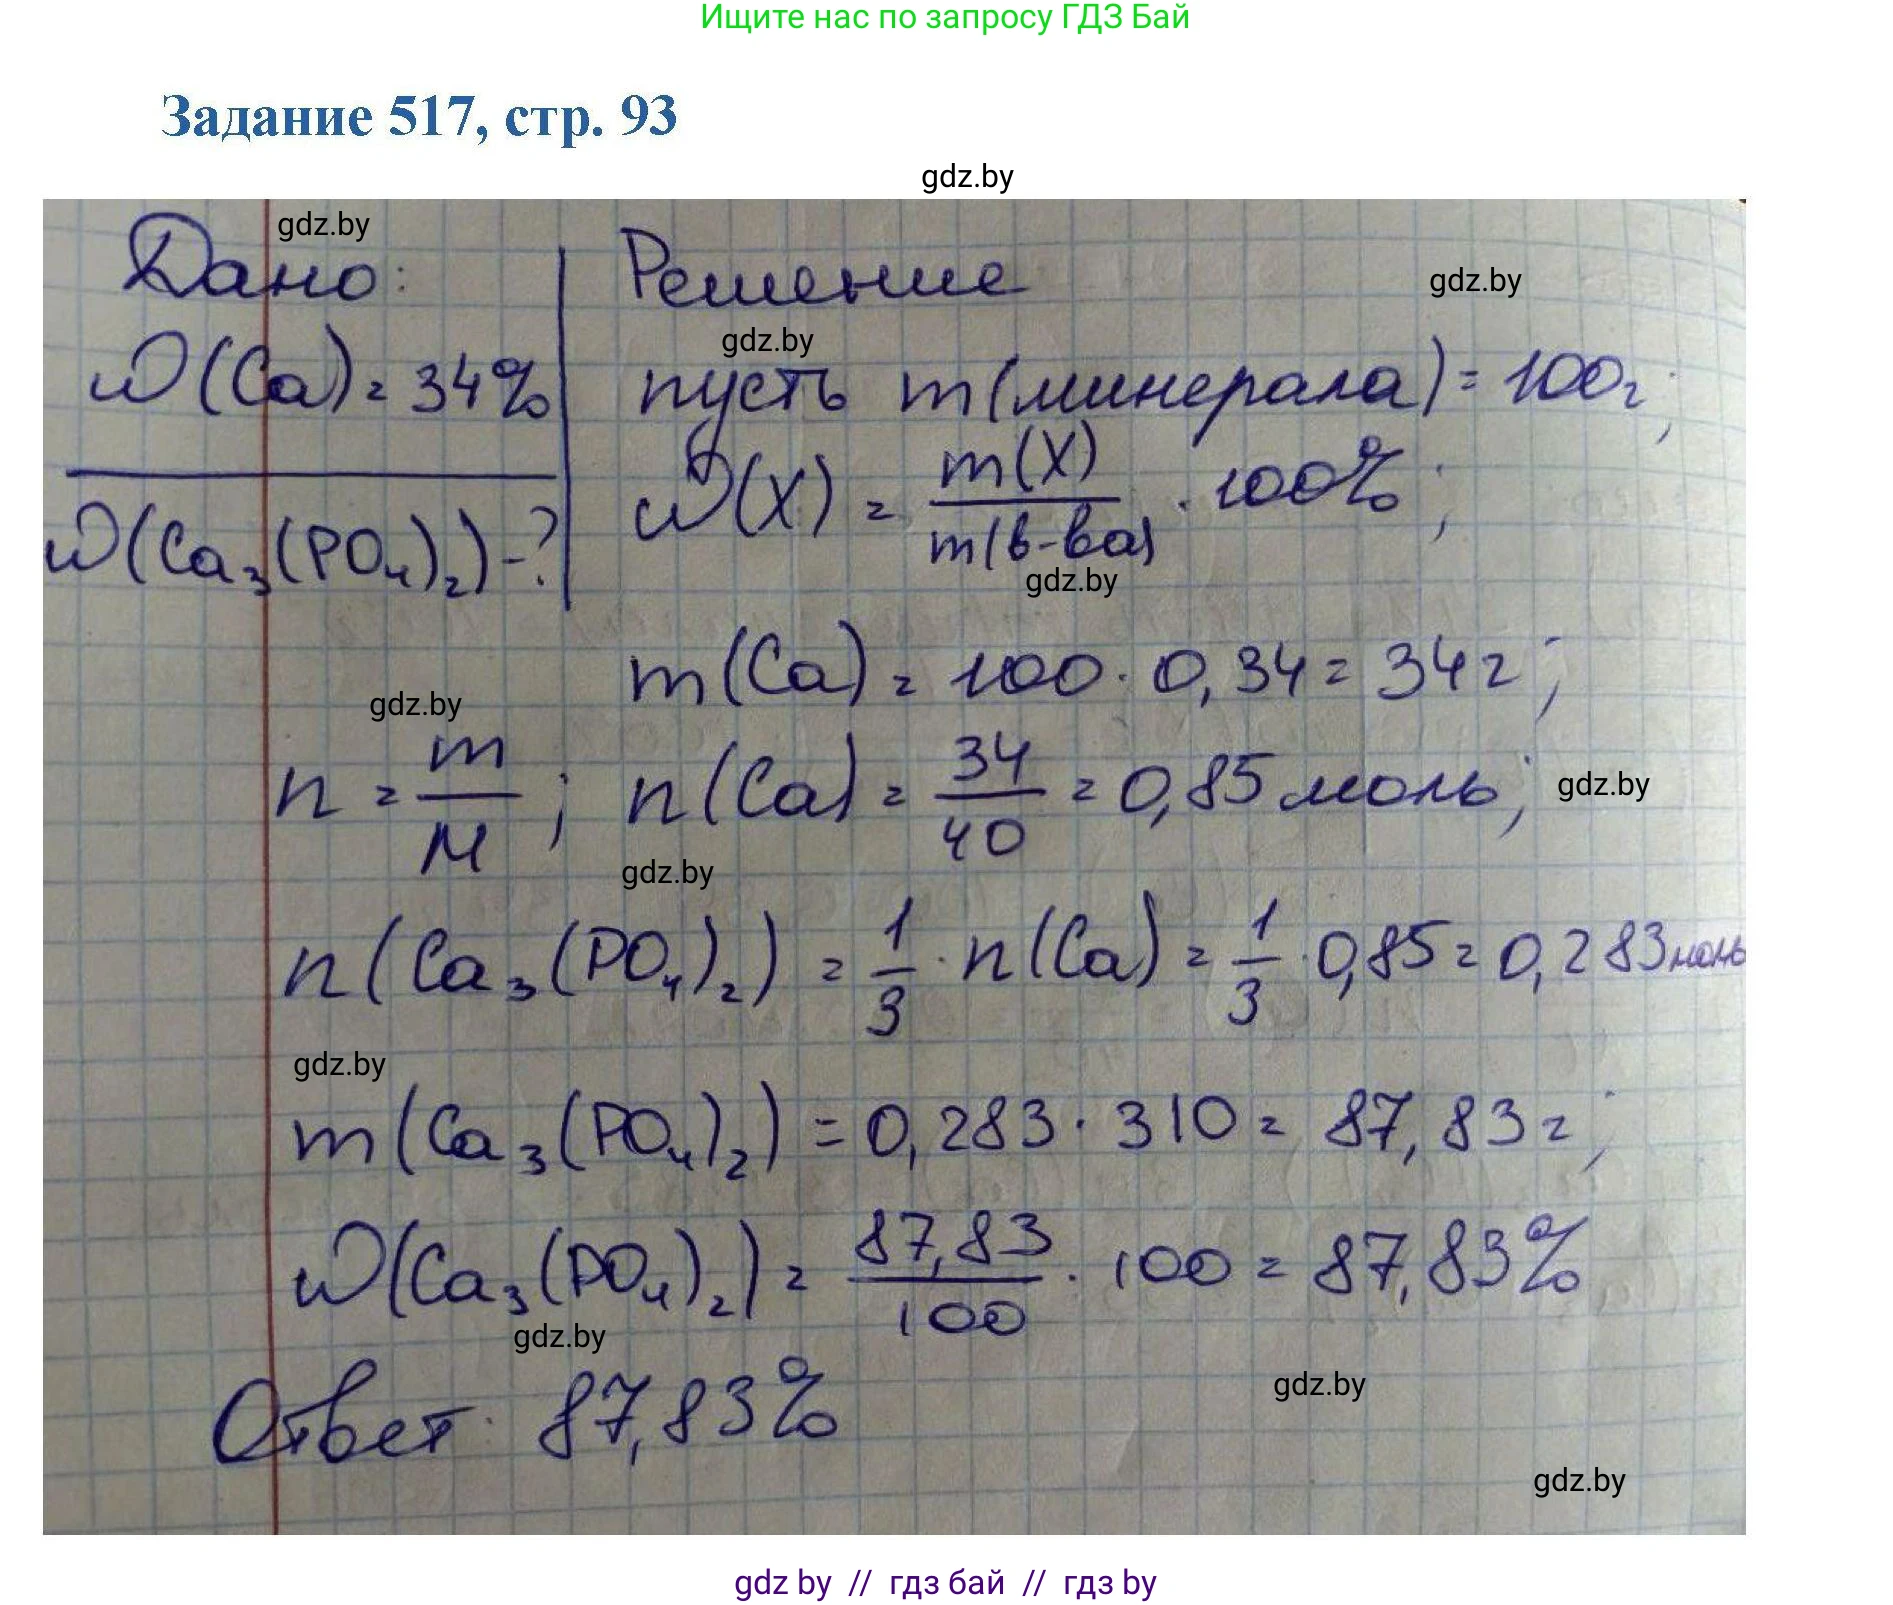 Ищите нас по запросу ГДЗ Бай
Задание 517, стр. 93
gdz.by
gdz.by
Дано: Решение
gdz.by
gdz.by
W(Ca) = 34% пусть m(минерала) = 100г;
W(X) = m(X)/m(в-ва) · 100%;
W(Ca₃(PO₄)₂) - ?
gdz.by
m(Ca) = 100 · 0,34 = 34г;
gdz.by
n = m/M; n(Ca) = 34/40 = 0,85 моль;
gdz.by
gdz.by
n(Ca₃(PO₄)₂) = 1/3 · n(Ca) = 1/3 · 0,85 = 0,283 моль
gdz.by
m(Ca₃(PO₄)₂) = 0,283 · 310 = 87,83г;
W(Ca₃(PO₄)₂) = 87,83/100 · 100 = 87,83%
gdz.by
gdz.by
Ответ: 87,83%
gdz.by
gdz by // гдз бай // гдз by